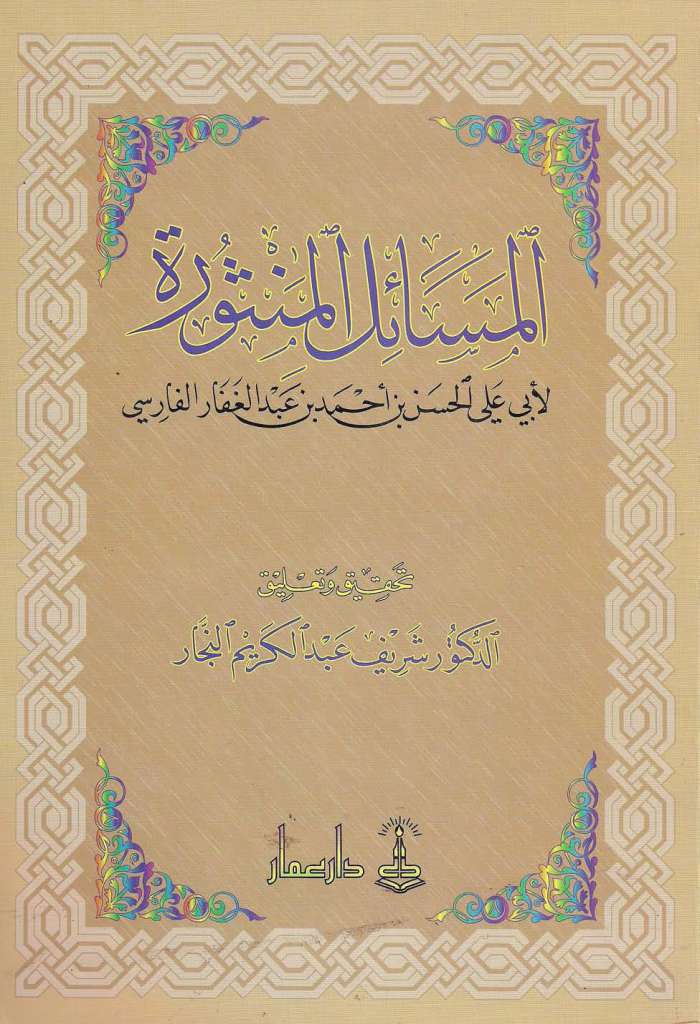 المَسَائِل المَنثُورَة
لأبي علي الحسن بن أحمد بن عَبد الغَفار الفارسي
تحقِيق وَتعليق
الدكتور شريف عَبد الكريم النجَّار
دار عمار